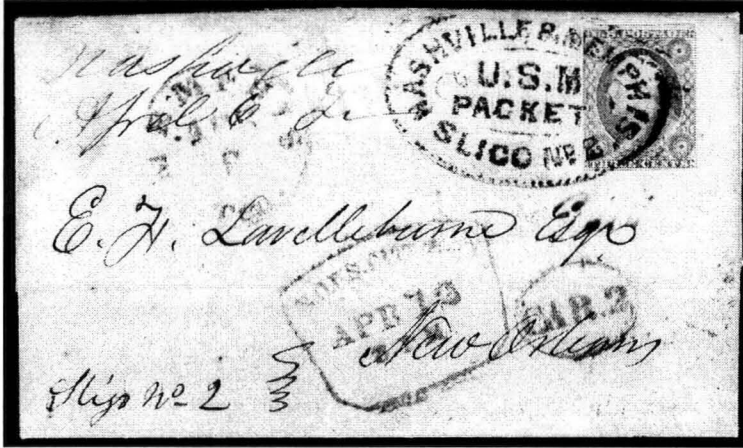 Nashville
April 6
NASHVILLE & MEMPHIS
U.S.M
PACKET
SLIGO No. 2
U.S. POSTAGE
E. H. Lavelleburne Esqr
APR 13
CAR. 2
New Orleans
Sligo No 2